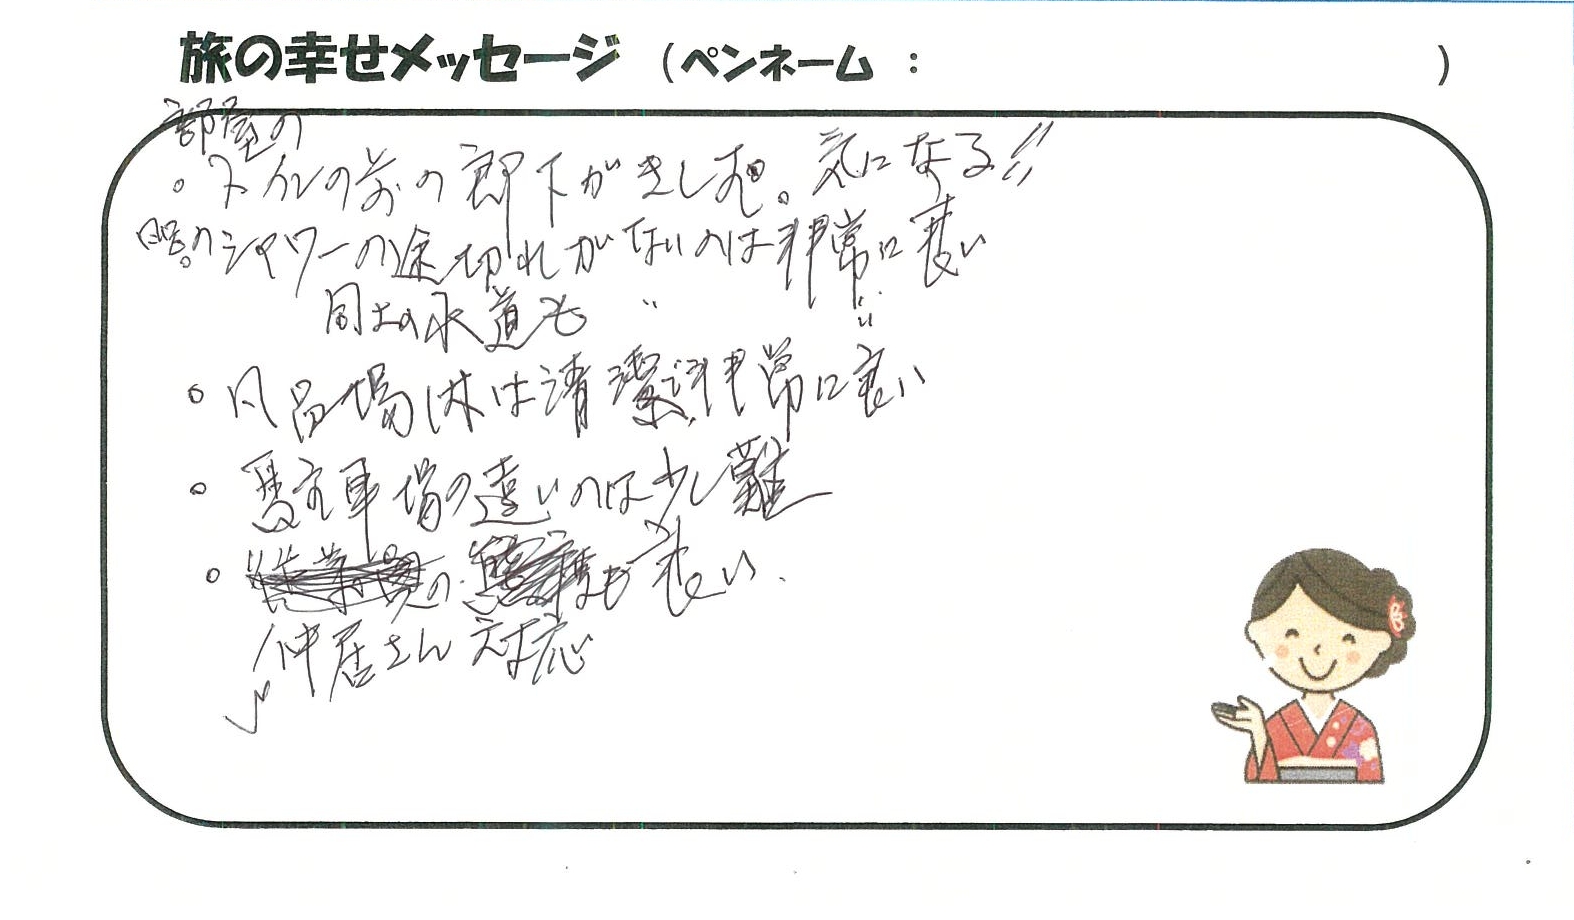 旅の幸せメッセージ (ペンネーム : )
部屋の
。トイレの前の廊下がきしむ。気になる!!
。風呂のシャワーの途切れがないのは非常に良い
同上の水道も 〃 〃
。風呂場 は清潔で非常に良い
。駐車場の遠いのは少し難
。の も良い.
仲居さん 対応